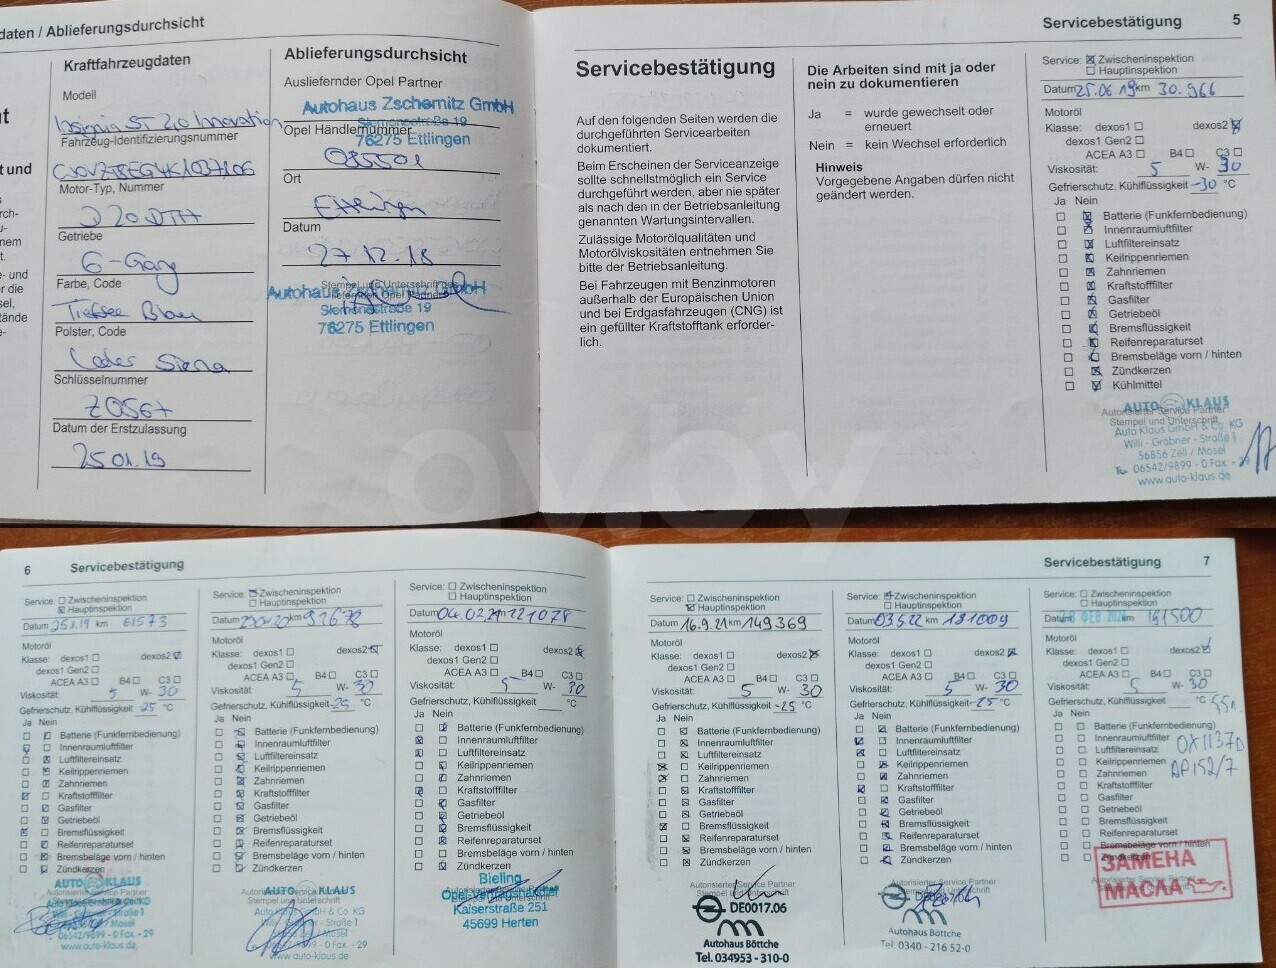 daten / Ablieferungsdurchsicht
Kraftfahrzeugdaten
Modell
Insignia ST 2.0 Innovation
Fahrzeug-Identifizierungsnummer
Motor-Typ, Nummer
D20DTH
Getriebe
6-Gang
Farbe, Code
Tiefsee Blau
Polster, Code
Leder Siena
Schlüsselnummer
Z0567
Datum der Erstzulassung
25.01.19
Ablieferungsdurchsicht
Ausliefernder Opel Partner
Autohaus Zschernitz GmbH
Siemensstraße 19
Opel Händlernummer
76275 Ettlingen
085501
Ort
Ettlingen
Datum
27.12.18
Autohaus Zschernitz GmbH
Siemensstraße 19
76275 Ettlingen
Servicebestätigung 5
Servicebestätigung
Auf den folgenden Seiten werden die
durchgeführten Servicearbeiten
dokumentiert.
Beim Erscheinen der Serviceanzeige
sollte schnellstmöglich ein Service
durchgeführt werden, aber nie später
als nach den in der Betriebsanleitung
genannten Wartungsintervallen.
Zulässige Motorölqualitäten und
Motorölviskositäten entnehmen Sie
bitte der Betriebsanleitung.
Bei Fahrzeugen mit Benzinmotoren
außerhalb der Europäischen Union
und bei Erdgasfahrzeugen (CNG) ist
ein gefüllter Kraftstofftank erforder-
lich.
Die Arbeiten sind mit ja oder
nein zu dokumentieren
Ja = wurde gewechselt oder
erneuert
Nein = kein Wechsel erforderlich
Hinweis
Vorgegebene Angaben dürfen nicht
geändert werden.
Service: Zwischeninspektion
Hauptinspektion
Datum 25.06.19 km 30.966
Motoröl
Klasse: dexos1 dexos2
dexos1 Gen2
ACEA A3 B4 C3
Viskosität: 5 W- 30
Gefrierschutz, Kühlflüssigkeit -30 °C
Ja Nein
Batterie (Funkfernbedienung)
Innenraumluftfilter
Luftfiltereinsatz
Keilrippenriemen
Zahnriemen
Kraftstofffilter
Gasfilter
Getriebeöl
Bremsflüssigkeit
Reifenreparaturset
Bremsbeläge vorn / hinten
Zündkerzen
Kühlmittel
AUTO KLAUS
Autorisierter Service Partner
Stempel und Unterschrift
Auto Klaus GmbH & Co. KG
Willi - Gräbner - Straße 1
56856 Zell / Mosel
06542/9899 - 0 Fax -
www.auto-klaus.de
av.by
6 Servicebestätigung
Service: Zwischeninspektion
Hauptinspektion
Datum km 61573
Motoröl
Klasse: dexos1 dexos2
dexos1 Gen2
ACEA A3 B4 C3
Viskosität: 5 W- 30
Gefrierschutz, Kühlflüssigkeit -25 °C
Ja Nein
Batterie (Funkfernbedienung)
Innenraumluftfilter
Luftfiltereinsatz
Keilrippenriemen
Zahnriemen
Kraftstofffilter
Gasfilter
Getriebeöl
Bremsflüssigkeit
Reifenreparaturset
Bremsbeläge vorn / hinten
Zündkerzen
AUTO KLAUS
Autorisierter Service Partner
06542/9899 - 0 Fax. - 29
www.auto-klaus.de
Service: Zwischeninspektion
Hauptinspektion
Datum km
Motoröl
Klasse: dexos1 dexos2
dexos1 Gen2
ACEA A3 B4 C3
Viskosität: 5 W- 30
Gefrierschutz, Kühlflüssigkeit -25 °C
Ja Nein
Batterie (Funkfernbedienung)
Innenraumluftfilter
Luftfiltereinsatz
Keilrippenriemen
Zahnriemen
Kraftstofffilter
Gasfilter
Getriebeöl
Bremsflüssigkeit
Reifenreparaturset
Bremsbeläge vorn / hinten
Zündkerzen
AUTO KLAUS
Autorisierter Service Partner
Stempel und Unterschrift
www.auto-klaus.de
Service: Zwischeninspektion
Hauptinspektion
Datum 04.02.21 km 121078
Motoröl
Klasse: dexos1 dexos2
dexos1 Gen2
ACEA A3 B4 C3
Viskosität: 5 W- 30
Gefrierschutz, Kühlflüssigkeit °C
Ja Nein
Batterie (Funkfernbedienung)
Innenraumluftfilter
Luftfiltereinsatz
Keilrippenriemen
Zahnriemen
Kraftstofffilter
Gasfilter
Getriebeöl
Bremsflüssigkeit
Reifenreparaturset
Bremsbeläge vorn / hinten
Zündkerzen
Bieling
Opel-Vertragshändler
Kaiserstraße 251
45699 Herten
Servicebestätigung 7
Service: Zwischeninspektion
Hauptinspektion
Datum 16.9.21 km 149369
Motoröl
Klasse: dexos1 dexos2
dexos1 Gen2
ACEA A3 B4 C3
Viskosität: 5 W- 30
Gefrierschutz, Kühlflüssigkeit -25 °C
Ja Nein
Batterie (Funkfernbedienung)
Innenraumluftfilter
Luftfiltereinsatz
Keilrippenriemen
Zahnriemen
Kraftstofffilter
Gasfilter
Getriebeöl
Bremsflüssigkeit
Reifenreparaturset
Bremsbeläge vorn / hinten
Zündkerzen
Autorisierter Service Partner
Stempel und Unterschrift
DE0017.06
Autohaus Böttche
Tel. 034953 - 310-0
Service: Zwischeninspektion
Hauptinspektion
Datum 03.5.22 km 181009
Motoröl
Klasse: dexos1 dexos2
dexos1 Gen2
ACEA A3 B4 C3
Viskosität: 5 W- 30
Gefrierschutz, Kühlflüssigkeit -25 °C
Ja Nein
Batterie (Funkfernbedienung)
Innenraumluftfilter
Luftfiltereinsatz
Keilrippenriemen
Zahnriemen
Kraftstofffilter
Gasfilter
Getriebeöl
Bremsflüssigkeit
Reifenreparaturset
Bremsbeläge vorn / hinten
Zündkerzen
Autorisierter Service Partner
Autohaus Böttche
Tel. 0340 - 216 52-0
Service: Zwischeninspektion
Hauptinspektion
Datum ФЕВ km 191500
Motoröl
Klasse: dexos1 dexos2
dexos1 Gen2
ACEA A3 B4 C3
Viskosität: 5 W- 30
Gefrierschutz, Kühlflüssigkeit °C
Ja Nein
Batterie (Funkfernbedienung)
Innenraumluftfilter
Luftfiltereinsatz OX1137D
Keilrippenriemen
Zahnriemen AP152/7
Kraftstofffilter
Gasfilter
Getriebeöl
Bremsflüssigkeit
Reifenreparaturset
Bremsbeläge vorn / hinten
Zündkerzen
ЗАМЕНА
МАСЛА